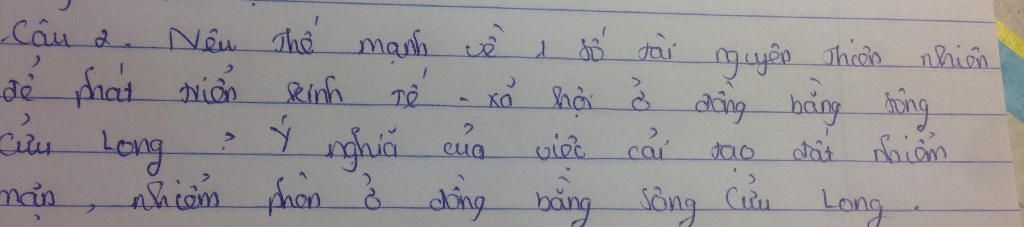 Câu 2. Nêu thế mạnh về 1 số tài nguyên thiên nhiên
để phát triển kinh tế - xã hội ở đồng bằng sông
Cửu Long ? Ý nghĩa của việc cải tạo đất nhiễm
mặn, nhiễm phèn ở đồng bằng sông Cửu Long.